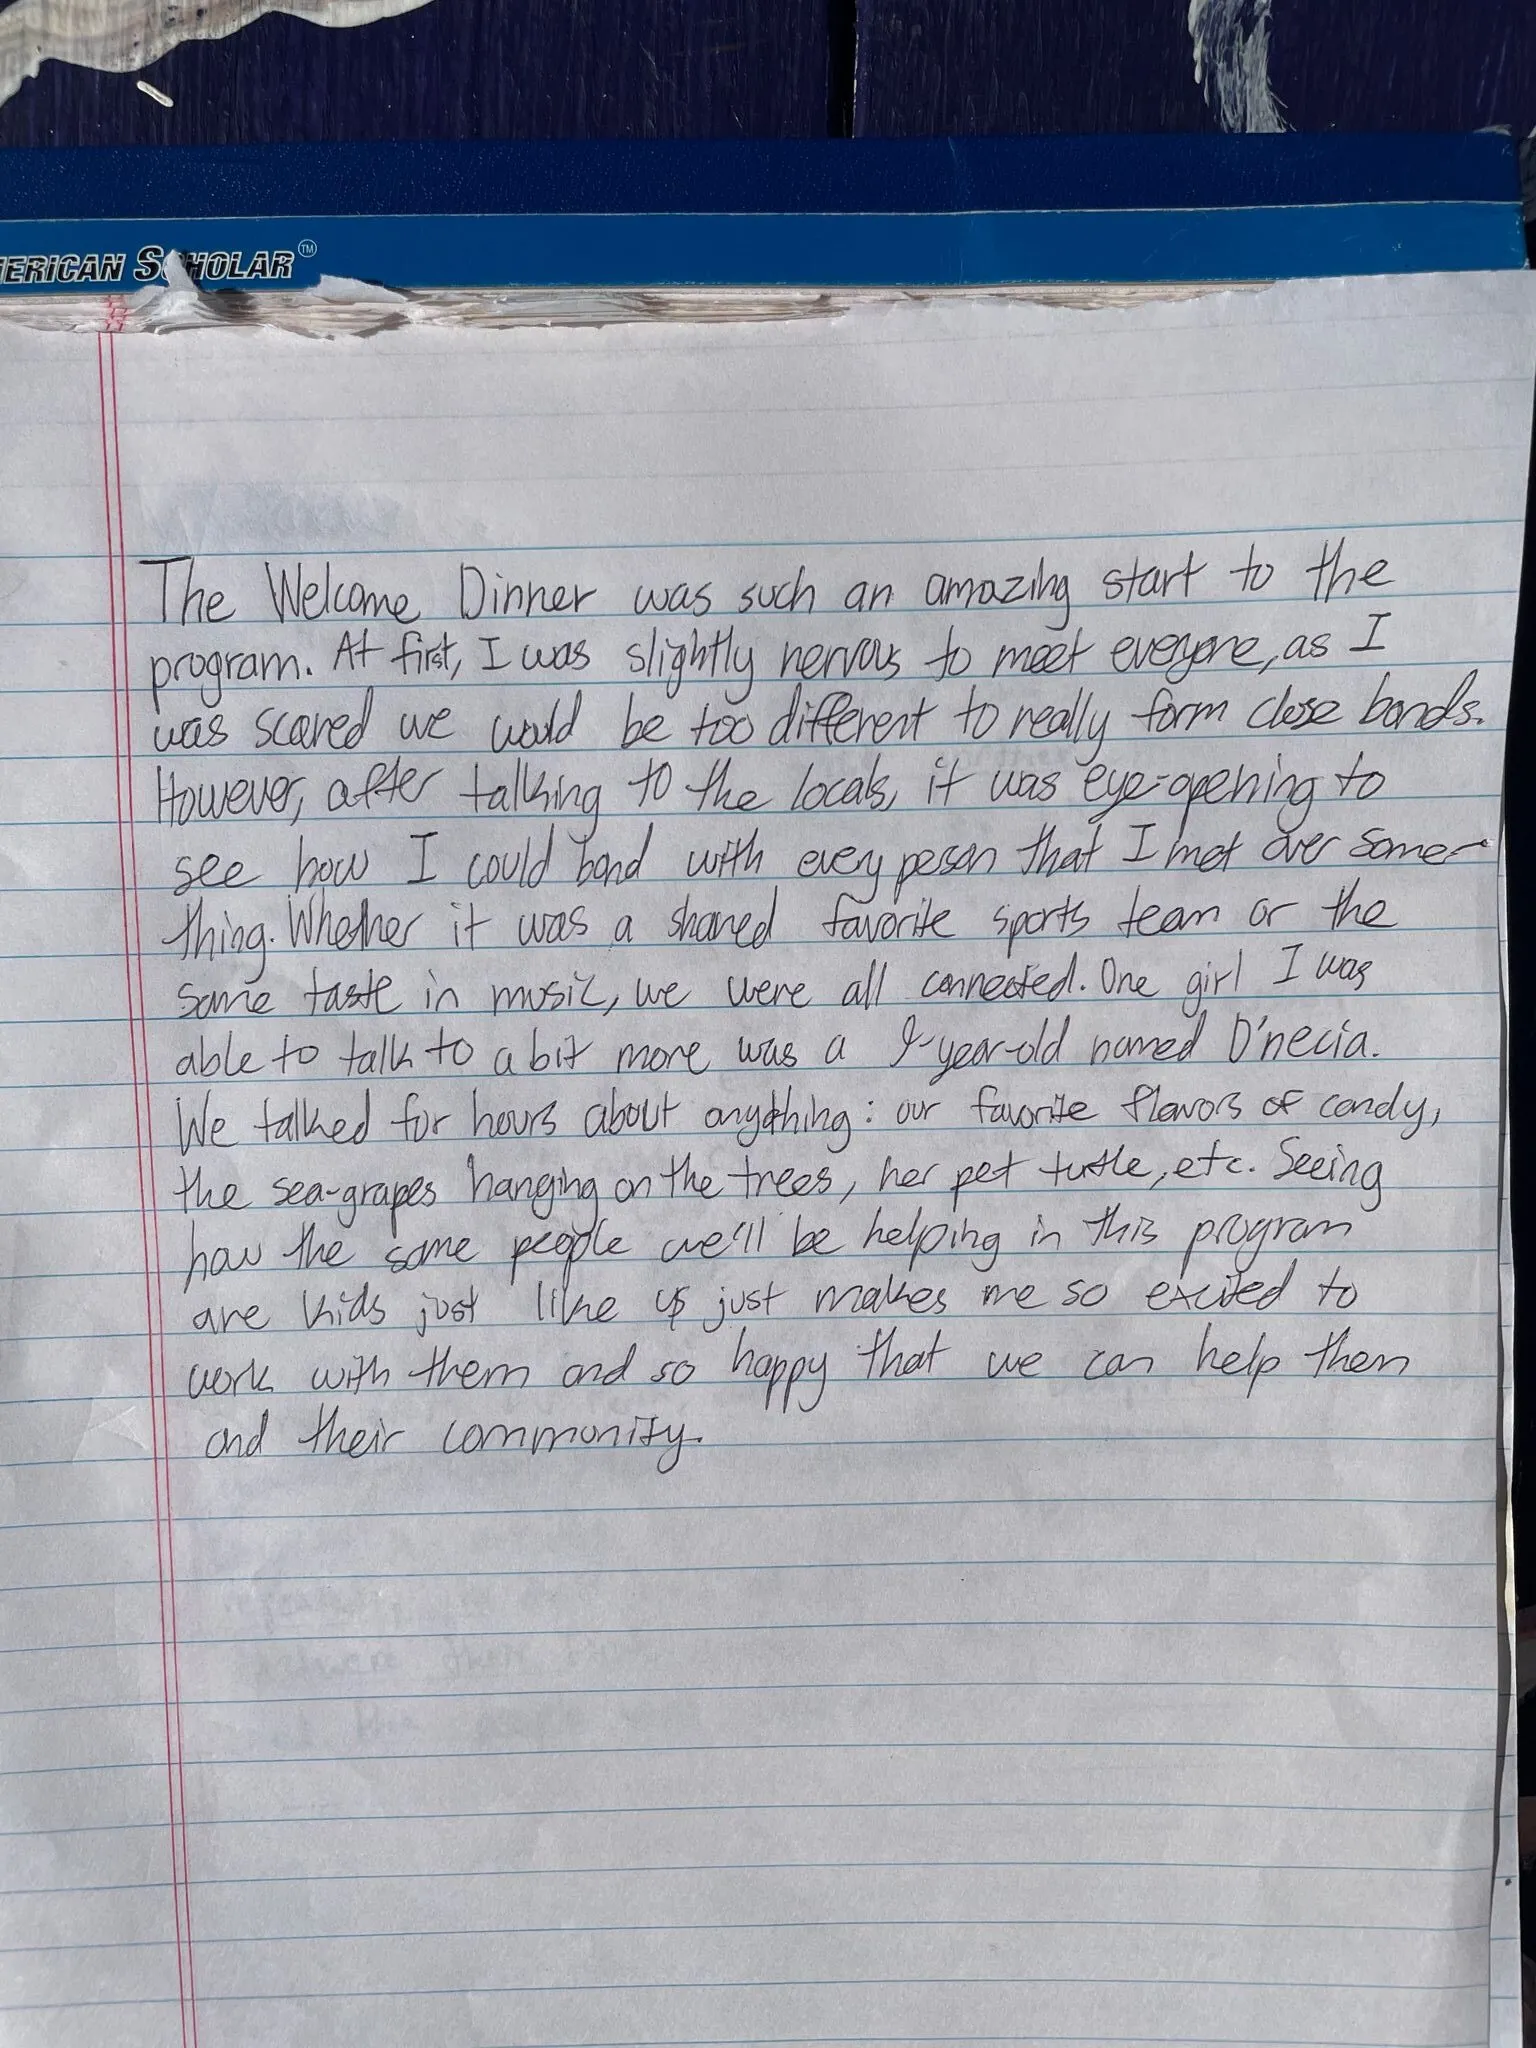 MERICAN SCHOLAR™
The Welcome Dinner was such an amazing start to the
program. At first, I was slightly nervous to meet everyone, as I
was scared we would be too different to really form close bonds.
However, after talking to the locals, it was eye-opening to
see how I could bond with every person that I met over some-
thing. Whether it was a shared favorite sports team or the
same taste in music, we were all connected. One girl I was
able to talk to a bit more was a 9-year-old named D'necia.
We talked for hours about anything: our favorite flavors of candy,
the sea-grapes hanging on the trees, her pet turtle, etc. Seeing
how the same people we'll be helping in this program
are kids just like us just makes me so excited to
work with them and so happy that we can help them
and their community.